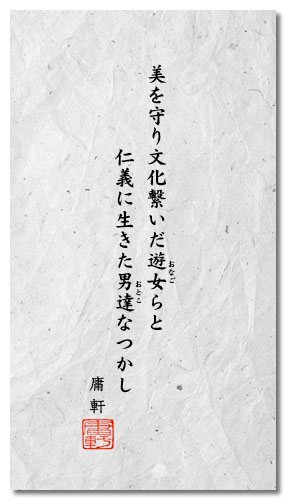 美を守り文化繋いだ遊女らと
おなご
仁義に生きた男達なつかし
おとこ
庸軒
庸軒